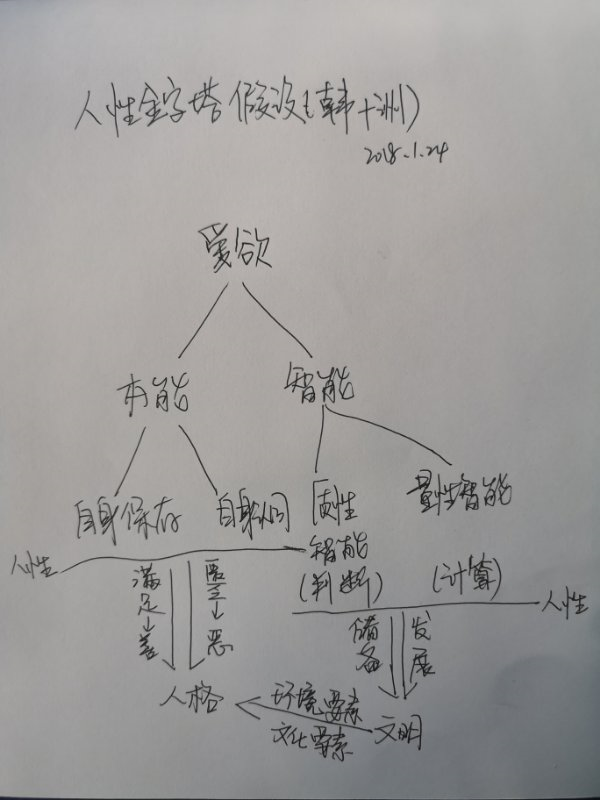 人性金字塔假设(韩十洲)
2018.1.24
爱欲
本能 智能
自身保存 自身认同 质性智能(判断) 量性智能(计算)
人性 人性
满足→善 匮乏→恶 储备 发展
人格 环境要素 文化要素 文明